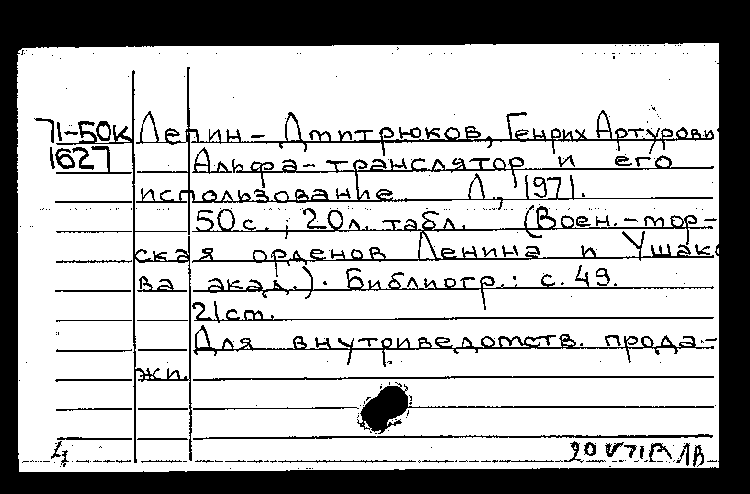 71-50к Лепин-Дмитрюков, Генрих Артурови
1627 Альфа-транслятор и его
использование. Л., 1971.
50 с.; 20 л. табл. (Воен.-мор-
ская орденов Ленина и Ушако
ва акад.). Библиогр.: с. 49.
21 ст.
Для внутриведомств. прода-
жи.